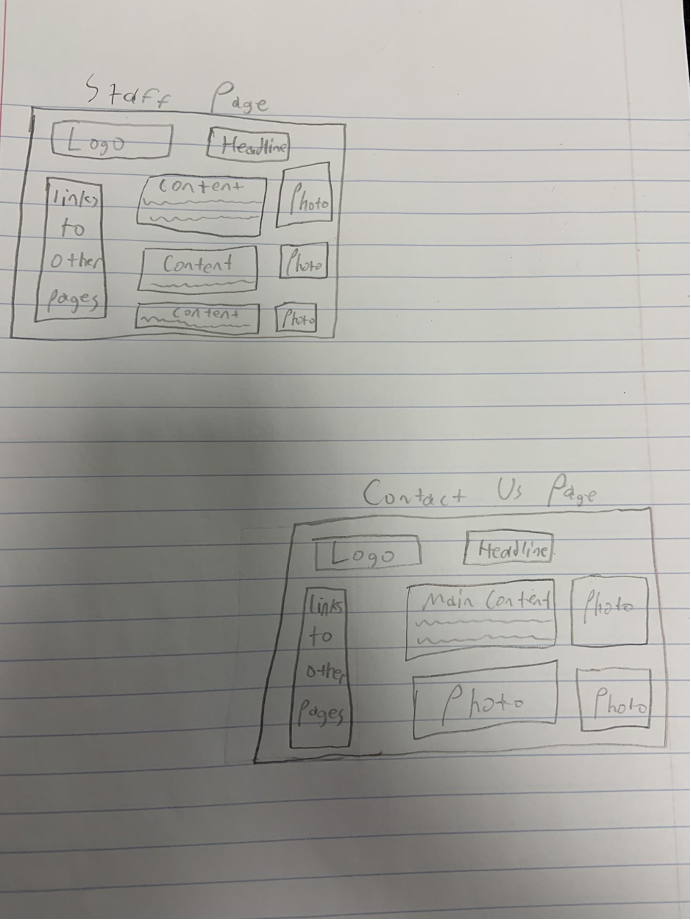 Staff Page
Logo
Headline
Links
to
other
pages
Content
Photo
Content
Photo
Content
Photo
Contact Us Page
Logo
Headline
Links
to
other
Pages
Main Content
Photo
Photo
Photo